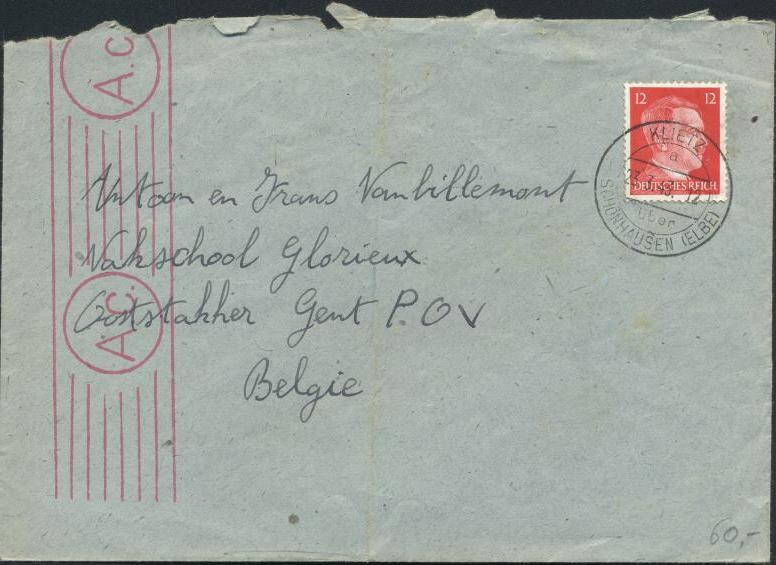 A.c.
12 12
DEUTSCHES REICH
KLIETZ
a
über
SCHÖNHAUSEN (ELBE)
Antoon en Frans Vanbillemont
Vakschool Glorieux
A.c.
Oostakker Gent P. OV
Belgie
60,-